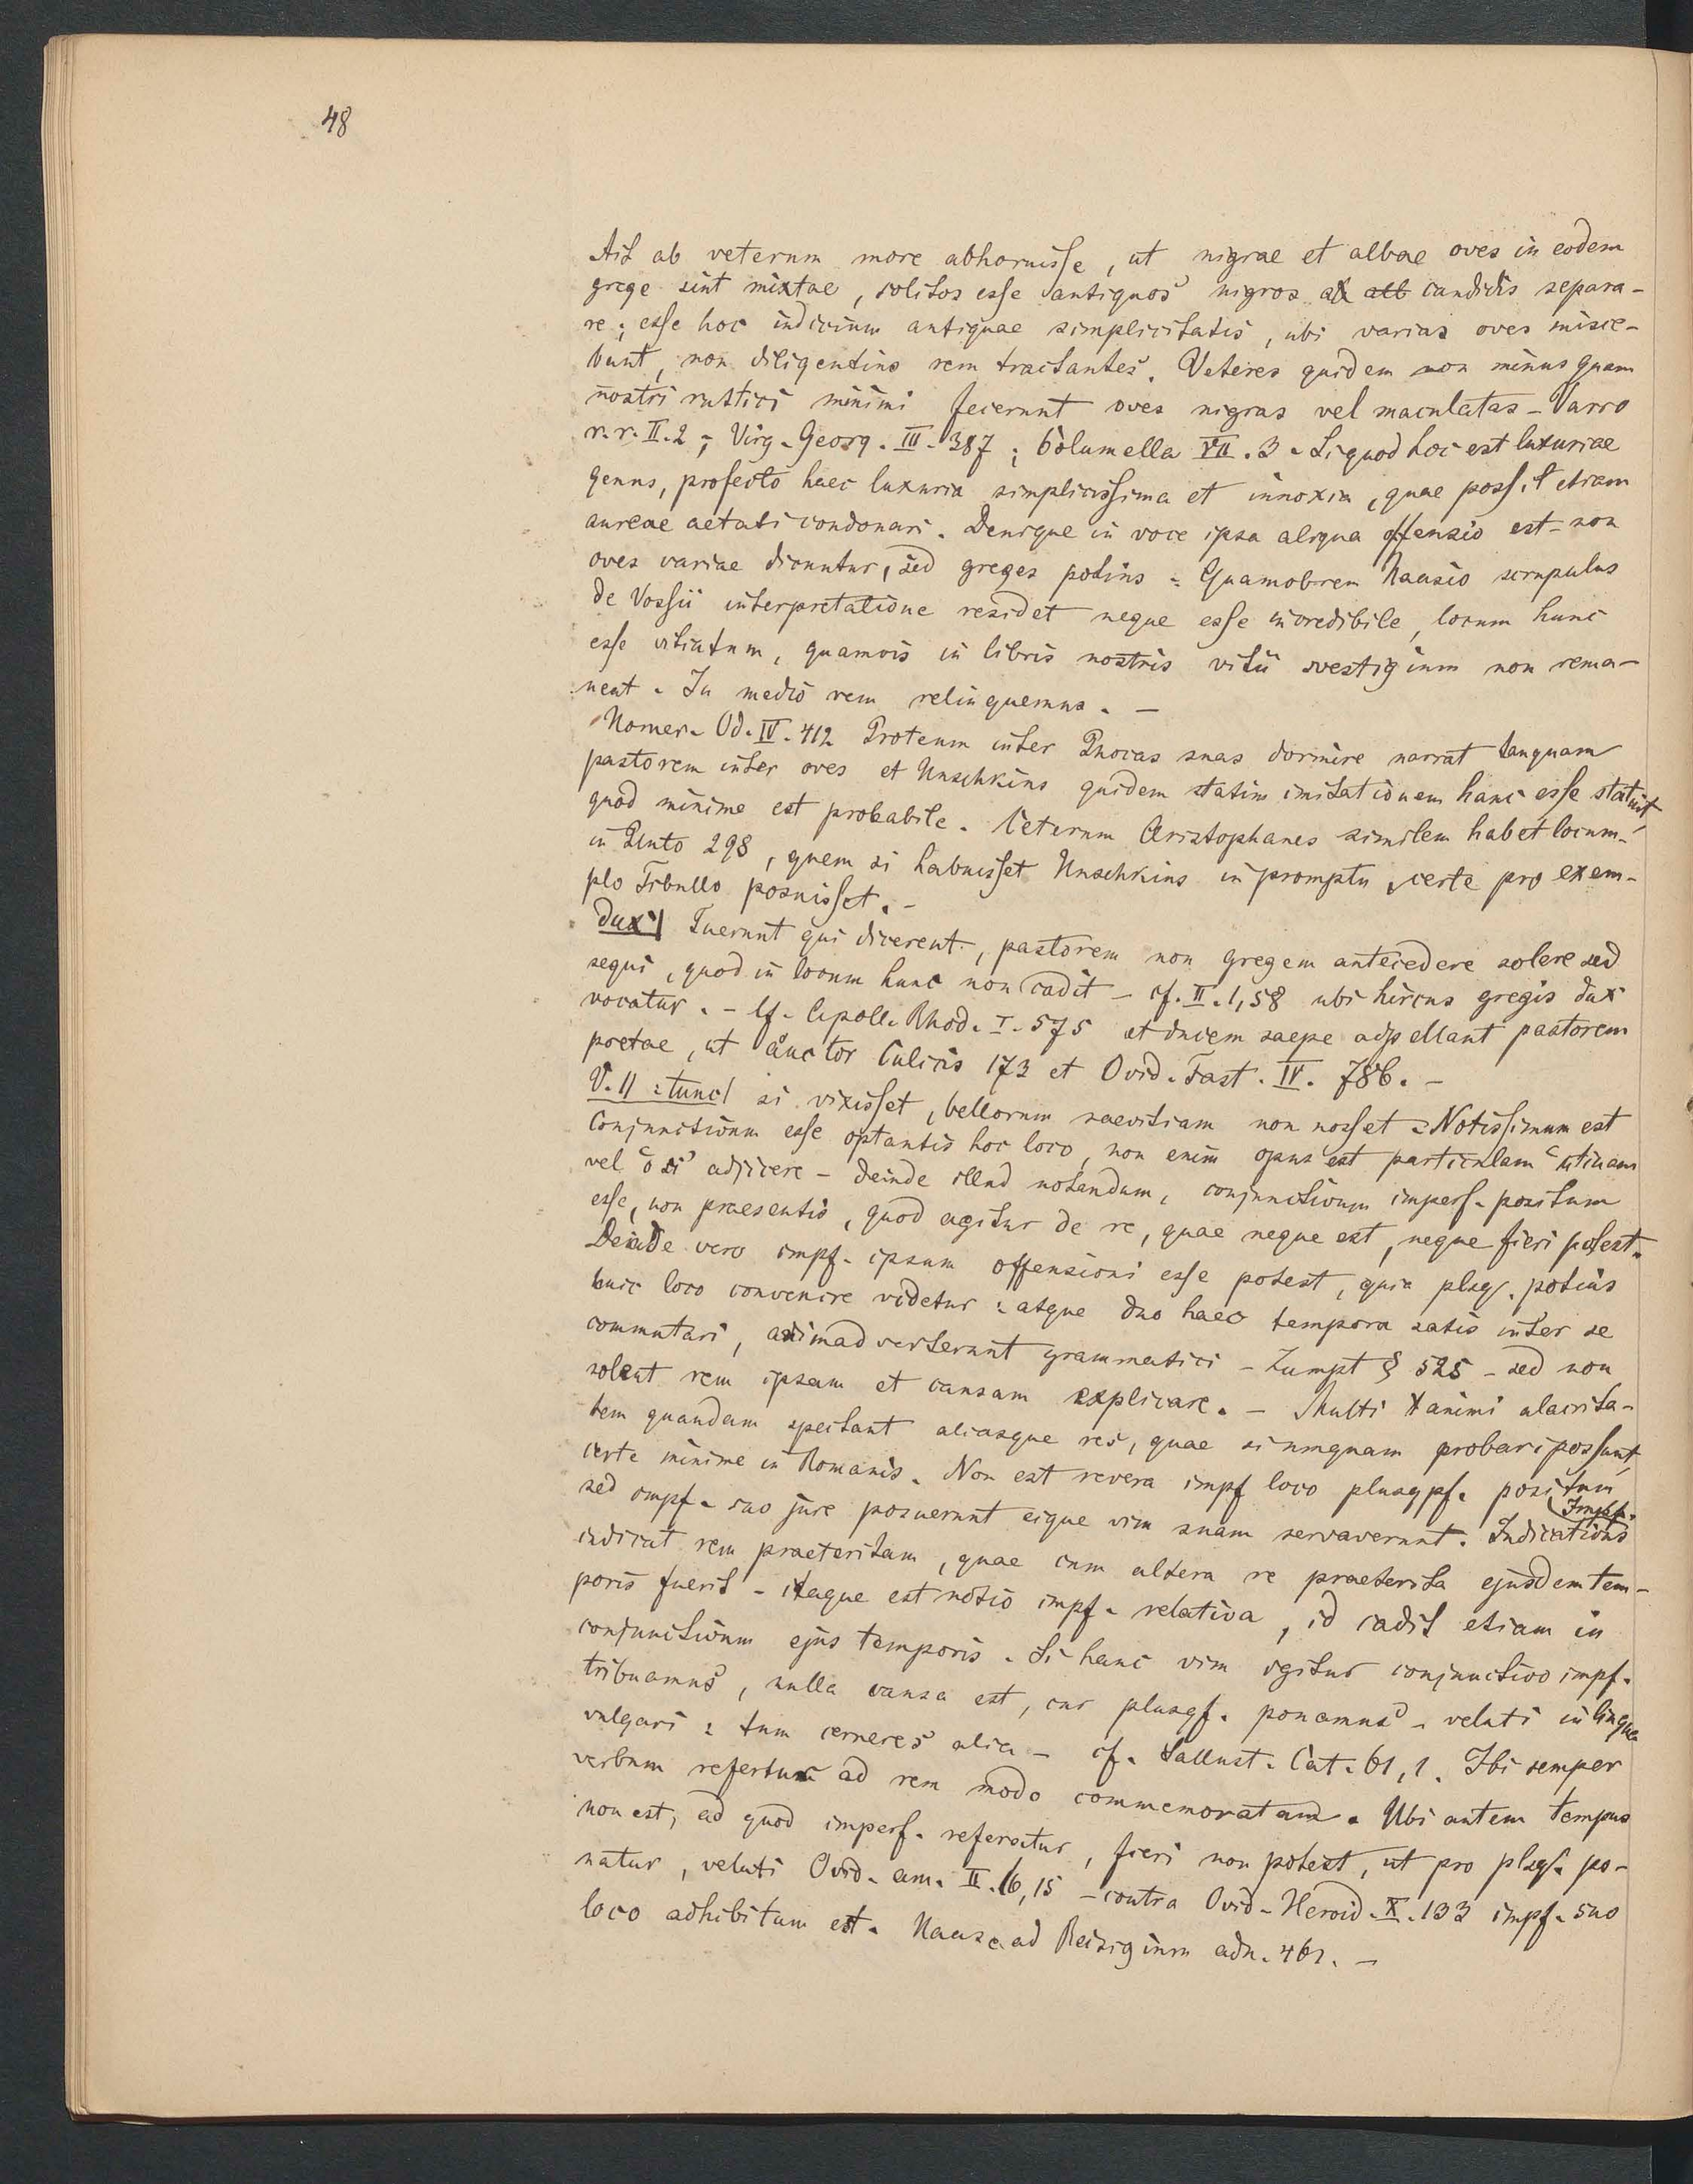 48
Ait ab veterum more abhoruisse, ut nigrae et albae oves in eodem
grege sint mixtae, solitos esse antiquos nigros a candidis separa-
re; esse hoc indicium antiquae simplicitatis, ubi varias oves misce-
bunt, non diligentius rem tractantes. Veteres quidem non minus quam
nostri rustici minimi fecerunt oves nigras vel maculatas - Varro
r. r. II. 2; Virg. Georg. III. 387; Columella VII. 3. Si quod hoc est luxuriae
genus, profecto haec luxuria simplicissima et innoxia, quae possit etiam
aureae aetati condonari. Denique in voce ipsa aliqua offensio est - non
oves variae dicuntur, sed greges potius - Quamobrem Haasio scrupulus
de Vossii interpretatione residet neque esse incredibile, locum hunc
esse vitiatum, quamvis in libris nostris vitii vestigium non rema-
neat. In medio rem relinquemus. -
Homer. Od. IV. 412 Proteum inter Phocas suas dormire narrat tanquam
pastorem inter oves et Huschkius quidem statim imitationem hanc esse statuit,
quod minime est probabile. Ceterum Aristophanes similem habet locum
in Pluto 298, quem si habuisset Huschkius in promptu, certe pro exem-
plo Tibullo posuisset. -
dux] Fuerunt qui dicerent, pastorem non gregem antecedere solere sed
sequi, quod in locum hunc non cadit - cf. II. 1, 58 ubi hircus gregis dux
vocatur. - Cf. Apoll. Rhod. I. 575 et ducem saepe adpellant pastorem
poetae, ut auctor Culicis 173 et Ovid. Fast. IV. 786. -
V. 11 : tunc] si vixisset, bellorum saevitiam non nosset - Notissimum est
Conjunctivum esse optantis hoc loco, non enim opus est particulam "utinam
vel "o si" adjicere - deinde illud notandum, conjunctivum imperf. positum
esse, non praesentis, quod agitur de re, quae neque est, neque fieri potest.
Deinde vero impf. ipsum offensioni esse potest, quia plsqf. potius
huic loco convenire videtur : atque duo haec tempora satis inter se
commutari, animadverterunt grammatici - Zumpt § 525 - sed non
solent rem ipsam et causam explicare. - Multi animi alacrita-
tem quandam spectant aliasque res, quae si umquam probari possunt,
certe minime in Romanis. Non est revera impf loco plusqpf. positum
sed impf. suo jure posuerunt eique vim suam servaverunt. Indicativus Impf.
indicat rem praeteritam, quae cum altera re praeterita ejusdem tem-
poris fuerit - itaque est notio impf. relativa, id cadit etiam in
conjunctivum ejus temporis. Si hanc vim igitur conjunctivo impf.
tribuamus, nulla causa est, cur plusqf. ponamus - veluti in lingua
vulgari : tum cerneres alia - cf. Sallust. Cat. 61, 1. Ibi semper
verbum refertur ad rem modo commemoratam. Ubi autem tempus
non est, ad quod imperf. referatur, fieri non potest, ut pro plsqf. po-
natur, veluti Ovid. am. II. 16, 15 - contra Ovid. Heroid. X. 133 impf. suo
loco adhibitum est. Haase ad Reisigium adn. 461. -